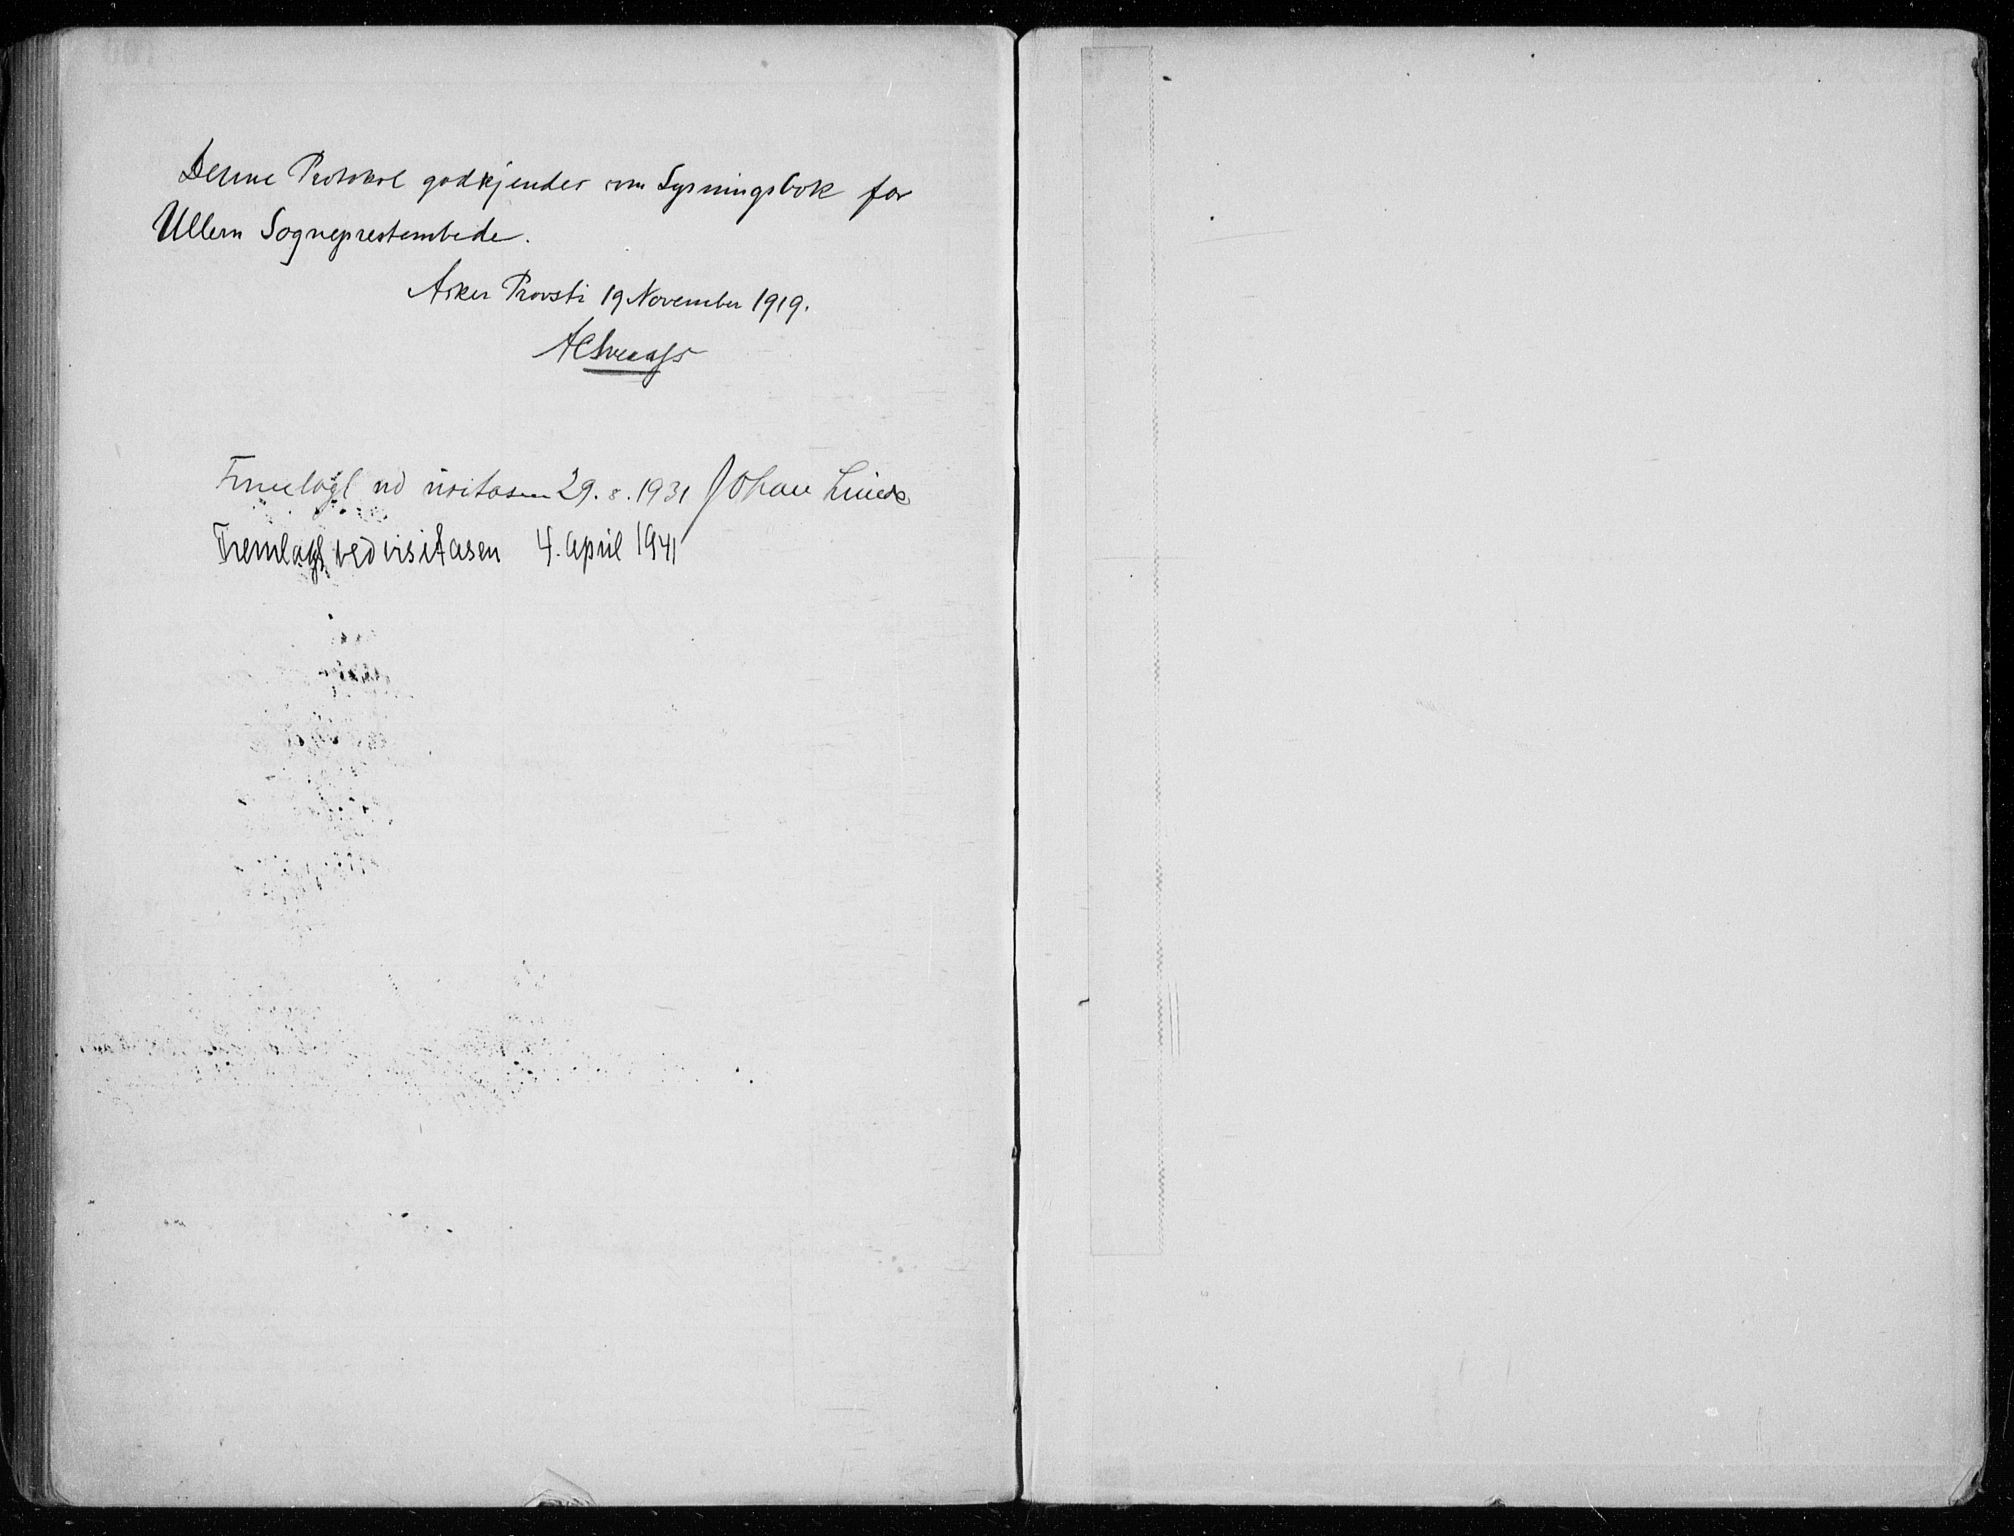 Denne Protokol godkjendes som Lysningsbok for
Ullern Sogneprestembede.
Asker Provsti 19 November 1919.
Fremlagt ved visitasen 29.8.1931 Johan Lunde
Fremlagt ved visitasen 4. april 1941